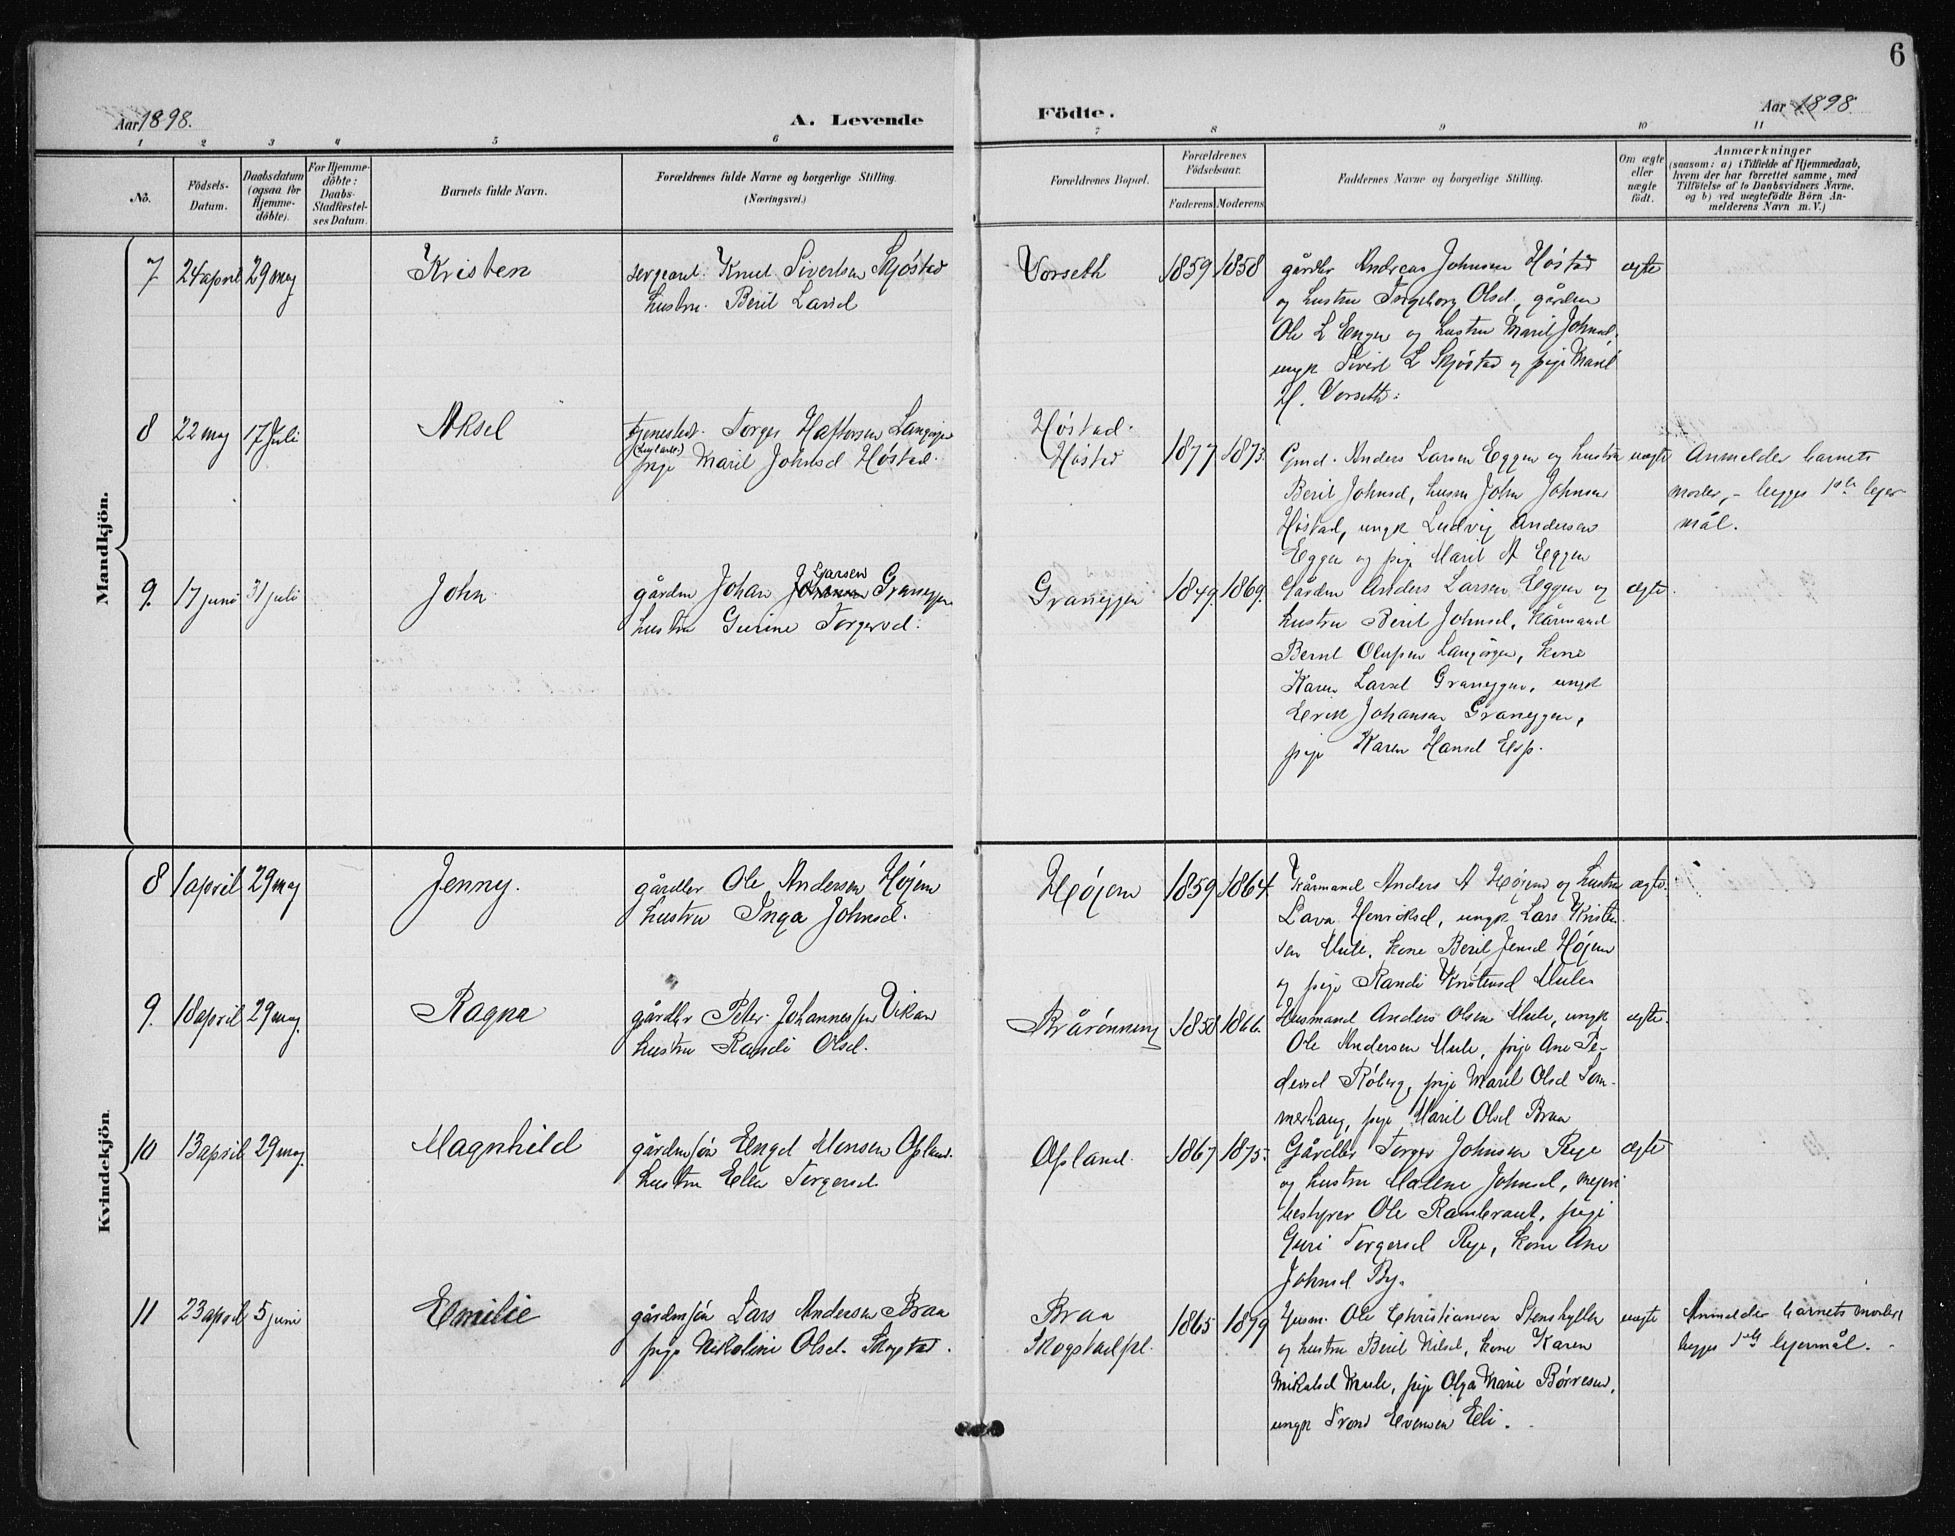 6
Aar 1898.
A. Levende
Födte.
Aar 1898
1 2 3 4 5 6 7 8 9 10 11
No.
Födsels-Datum.
Daabsdatum (ogsaa for Hjemme-döbte).
For Hjemme-döbte: Daabs-Stadfæstel-ses Datum.
Barnets fulde Navn.
Forældrenes fulde Navne og borgerlige Stilling (Næringsvei.)
Forældrenes Bopæl.
Forældrenes Födselsaar.
Faderens Moderens
Faddernes Navne og borgerlige Stilling.
Om ægte eller uægte födt.
Anmærkninger
(saasom: a) i Tilfælde af Hjemmedaab,
hvem der har forrettet samme, med
Tilföielse af to Daabsvidners Navne,
og b) ved uægtefödte Börn An-
melderens Navn m. V.)
Mandkjön.
7 24 april 29 maj Kristen
sergeant. Knut Sivertsen Skjøstad
hustru. Beril Larsd
Vorseth 1859 1858
gårdbr Andreas Johnsen Høstad
og hustru Ingeborg Olsd, gårdm
Ole L Enger og hustru Marit Johnsd,
ungk Sivert L Skjøstad og pige Marit
H. Vorseth.
ægte
8 22 maj 17 Juli Aksel
tjenested. Torger Haftorsen Langørgen
pige Marit Johnsd Høstad.
Høstad.
Høstad 1877 1873.
Gmd. Anders Larsen Eggen og hustru
Beril Johnsd, husm John Johnsen
Høstad, ungk Ludvig Andersen
Eggen og pige Marit A Eggen
uægte
Anmelder barnets
moder, - begges 1ste lejer-
mål.
9. 17 juni 31 juli John
gårdm Johan Larsen Graneggen
hustru Gurine Torgersd.
Graneggen 1849. 1869.
Gårdm Anders Larsen Eggen og
hustru Beril Johnsd, kårmand
Bernt Olufsen Langørgen, kone
Karen Larsd Graneggen, ungk
Erik Johansen Graneggen,
pige Karen Hansd Esp.
ægte.
Kvindekjön.
8 1 april 29 maj Jenny.
gårdbr Ole Andersen Højem
hustru Inga Johnsd.
Højem 1859 1864.
Kårmand Anders A Højem og hustru
Lava Henriksd, ungk Lars Kristen-
sen Mule, kone Beril Jensd Højem
og pige Randi Kristensd Mule
ægte.
9. 18 april 29 maj. Ragna
gårdbr Peter Johannessen Vikan
hustru Randi Olsd.
Brårønning 1858 1866.
Husmand Anders Olsen Mule, ungk
Ole Andersen Mule, pige Ane Pe-
dersd Røberg, pige Marit Olsd Som-
merhaug, pige Marit Olsd Braa
ægte.
10 13 april 29 maj. Magnhild
gårdmsøn Engel Monsen Opland.
hustru Elen Torgersd.
Opland. 1867 1875.
Gårdbr Torger Johnsen Rye
og hustru Malene Johnsd, mejeri
bestyrer Ole Rambraut, pige
Guri Torgersd Rye, kone Ane
Johnsd By.
ægte
11 23 april 5 juni Emilie
gårdmsøn Lars Andersen Braa
pige Nikoline Olsd. Skogstad.
Braa
Skogstadpl. 1865 1879
Husm. Ole Christiansen Stenshylla
og hustru Beril Nilsd, kone Karen
Mikalsd Mule, pige Olga Marie Børresen,
ungk Trond Evensen Eli.
uægte
Anmelder barnets moder,
begges 1ste lejermål.